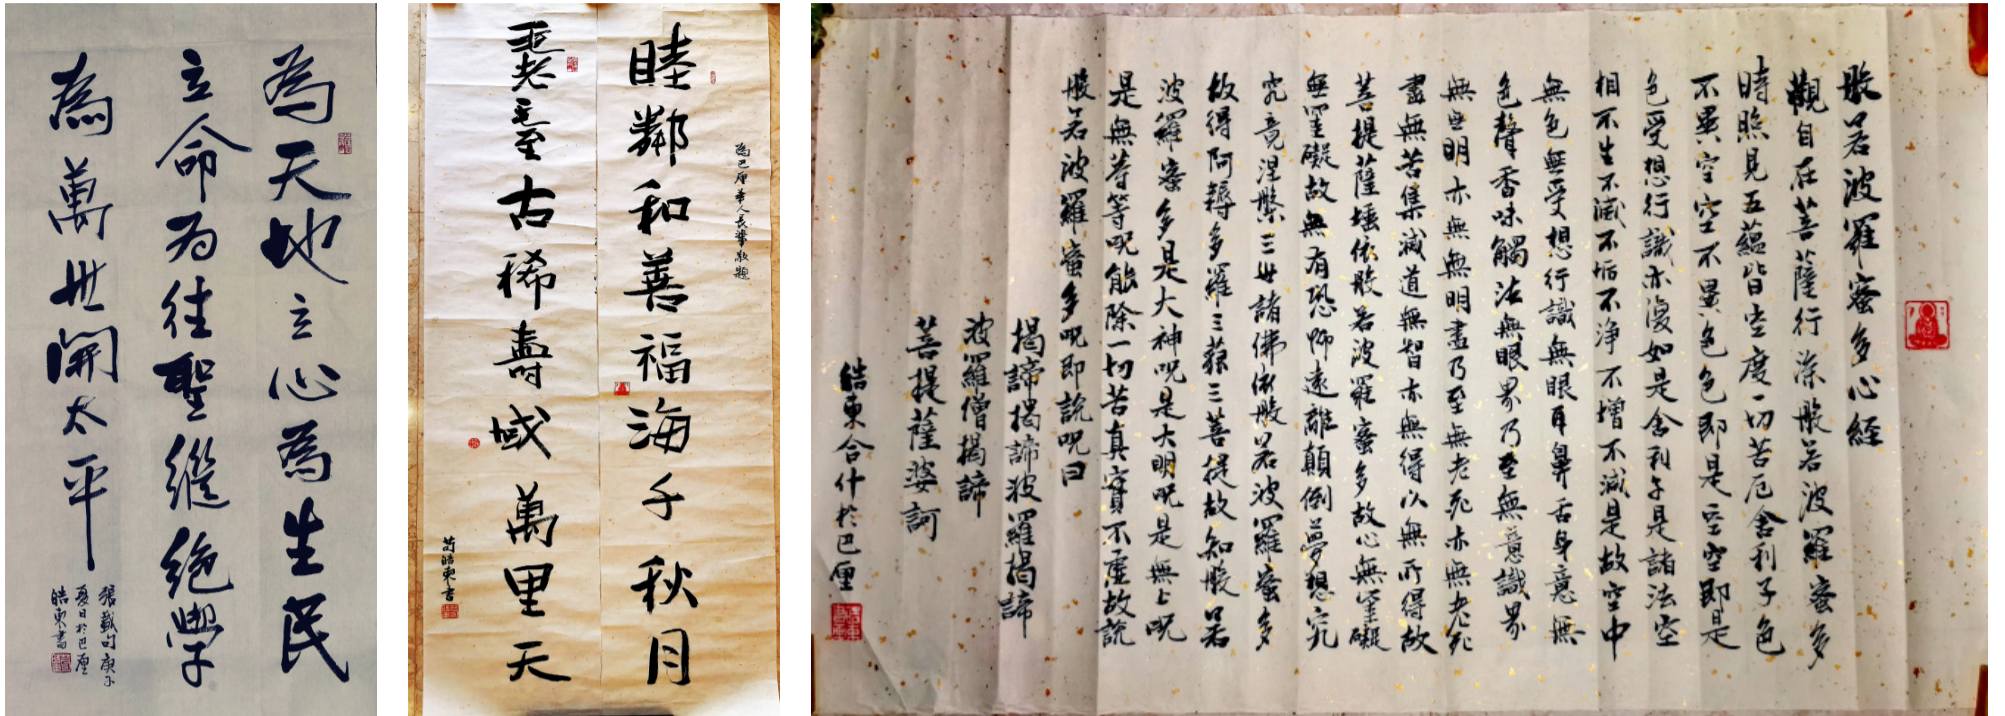 為天地立心為生民
立命为往聖繼絕學
為萬世開太平
張載句庚子
夏日於巴厘
皓東書
為巴厘華人長輩敬題
睦鄰和善福海千秋月
古稀壽域萬里天
苟皓東書
般若波羅蜜多心經
觀自在菩薩行深般若波羅蜜多
時照見五蘊皆空度一切苦厄舍利子色
不異空空不異色色即是空空即是
色受想行識亦復如是舍利子是諸法空
相不生不滅不垢不净不增不減是故空中
無色無受想行識無眼耳鼻舌身意無
色聲香味觸法無眼界乃至無意識界
無無明亦無無明盡乃至無老死亦無老死
盡無苦集滅道無智亦無得以無所得故
菩提薩埵依般若波羅蜜多故心無罣礙
無罣礙故無有恐怖遠離顛倒夢想究
究竟涅槃三世諸佛依般若波羅蜜多
故得阿耨多羅三藐三菩提故知般若
波羅蜜多是大神呪是大明呪是無上呪
是無等等呪能除一切苦真實不虛故說
般若波羅蜜多呪即說呪曰
揭諦揭諦波羅揭諦
波羅僧揭諦
菩提薩婆訶
皓東合什於巴厘